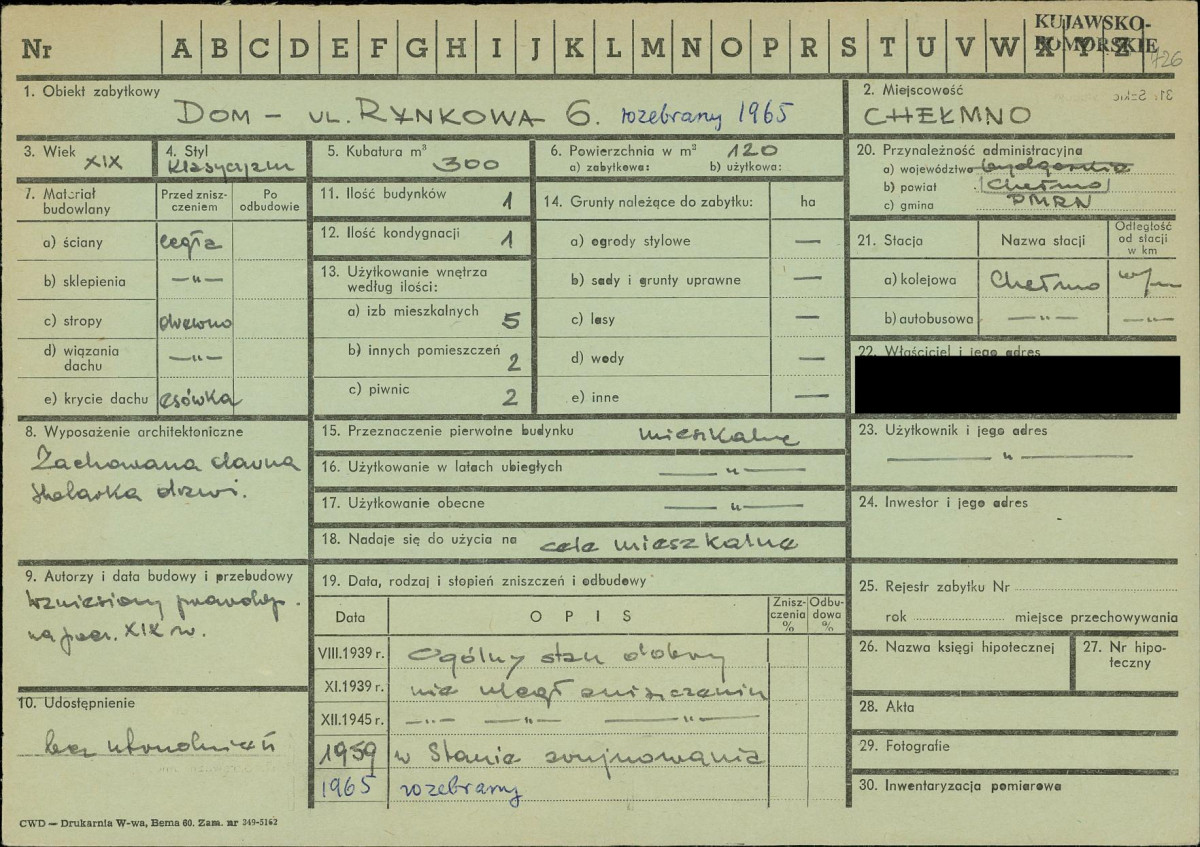 Nr A B C D E F G H I J K L M N O P R S T U V W X Y Z
KUJAWSKO-
POMORSKIE
726
1. Obiekt zabytkowy
DOM – UL. RYNKOWA 6. rozebrany 1965
2. Miejscowość
CHEŁMNO
3. Wiek
XIX
4. Styl
Klasycyzm
5. Kubatura m³
300
6. Powierzchnia w m³ 120
a) zabytkowa: b) użytkowa:
20. Przynależność administracyjna
a) województwo bydgoskie
b) powiat Chełmno
c) gmina PMRN
7. Materiał
budowlany
Przed znisz-
czeniem
Po
odbudowie
a) ściany cegła
b) sklepienia —"—
c) stropy drewno
d) wiązania
dachu —"—
e) krycie dachu esówka
11. Ilość budynków 1
12. Ilość kondygnacji 1
13. Użytkowanie wnętrza
według ilości:
a) izb mieszkalnych 5
b) innych pomieszczeń 2
c) piwnic 2
14. Grunty należące do zabytku: ha
a) ogrody stylowe —
b) sady i grunty uprawne —
c) lasy —
d) wody —
e) inne —
21. Stacja Nazwa stacji Odległość
od stacji
w km
a) kolejowa Chełmno w/m
b) autobusowa —"— —"—
22. Właściciel i jego adres
8. Wyposażenie architektoniczne
Zachowana dawna
stolarka drzwi.
15. Przeznaczenie pierwotne budynku mieszkalne
16. Użytkowanie w latach ubiegłych —"—
17. Użytkowanie obecne —"—
18. Nadaje się do użycia na cele mieszkalne
23. Użytkownik i jego adres
—"—
24. Inwestor i jego adres
9. Autorzy i data budowy i przebudowy
Wzniesiony prawdop.
na pocz. XIX w.
10. Udostępnienie
bez utrudnień
19. Data, rodzaj i stopień zniszczeń i odbudowy
Data OPIS Znisz-
czenia
% Odbu-
dowa
%
VIII.1939 r. Ogólny stan dobry
XI.1939 r. nie uległ zniszczeniu
XII.1945 r. —"— —"— —"—
1959 w Stanie zrujnowania
1965 rozebrany
25. Rejestr zabytku Nr
rok miejsce przechowywania
26. Nazwa księgi hipotecznej
27. Nr hipo-
teczny
28. Akta
29. Fotografie
30. Inwentaryzacja pomiarowa
CWD — Drukarnia W-wa, Bema 60. Zam. nr 349-5162